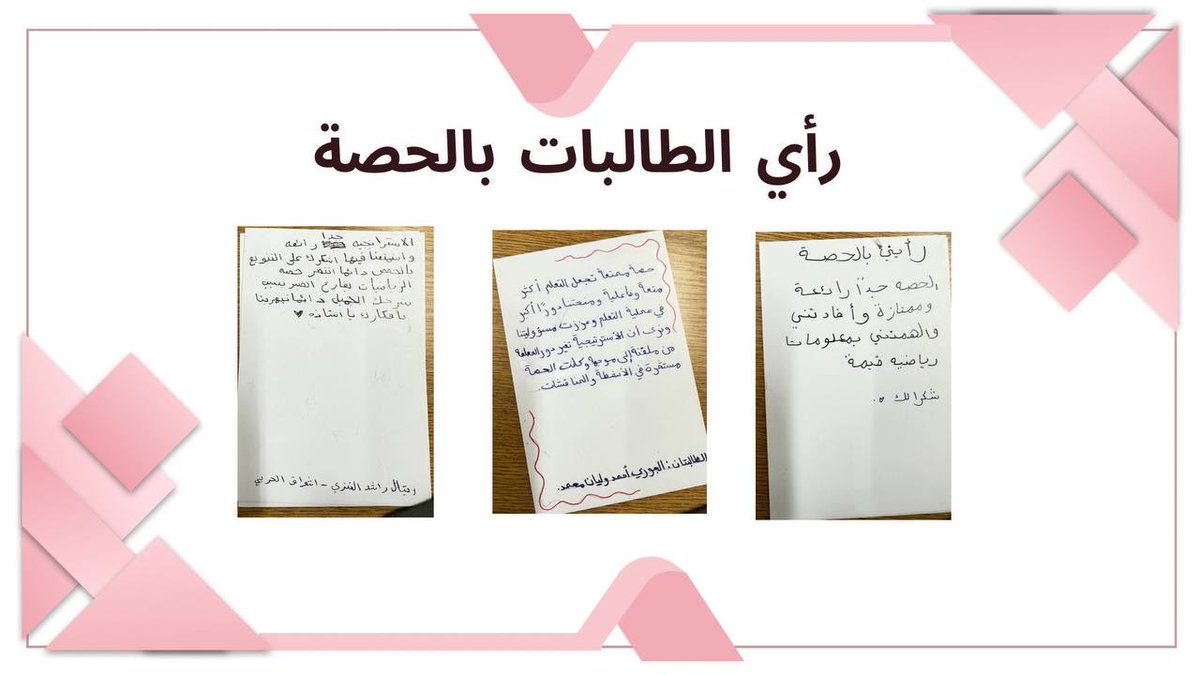 رأي الطالبات بالحصة
رأيي بالحصة
الحصه جداً رائعة
وممتازة وأفادتني
والهمتني بمعلومات
رياضيه قيمة
شكرا لك
حصة ممتعة تجعل التعلم أكثر
متعة وفاعلية ومنحتنا دورًا أكبر
في عملية التعلم وعززت مسؤوليتنا
ونرى أن الأستراتيجية تغير دور المعلمة
من ملقنة إلى موجهة وكانت الحصة
مستمرة في الأنشطة والمناقشات.
الطالبتان: الجوري أحمد وليان محمد.
الاستراتيجيه جداً رائعه
واستمتعنا فيها اشكرك على التنويع
بالحصص دائما انتظر حصه
الرياضيات بفارغ الصبر بسبب
شرحك الجميل دائما تبهرينا
بأفكارك يا استاذه ♥
راشد العنزي - الحربي